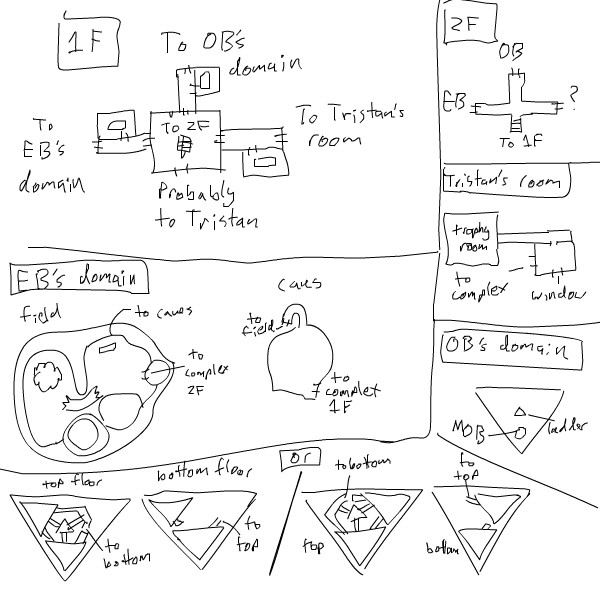 1F
To OB's
domain
To
EB's
domain
To 2F
To Tristan's
room
Probably
to Tristan
2F
OB
EB
?
To 1F
Tristan's room
trophy
room
to
complex
window
EB's domain
field
to caves
to
complex
2F
caves
to
field
to
complex
1F
OB's domain
MOB
ladder
top floor
to
bottom
bottom floor
to
top
or
to bottom
top
to
top
bottom